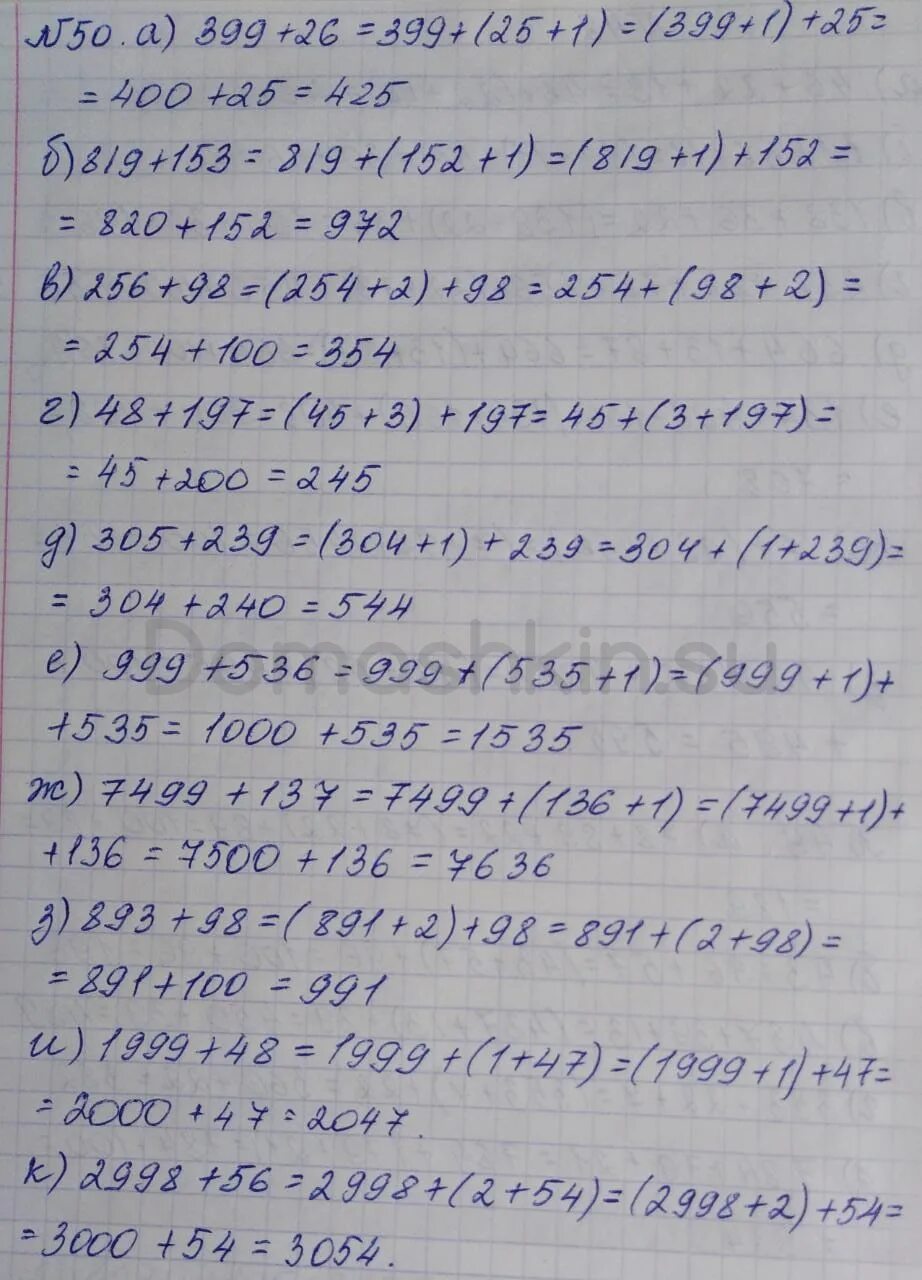 №50. а) 399+26 = 399+(25+1) = (399+1)+25=
= 400+25 = 425
б) 819+153 = 819+(152+1) = (819+1)+152 =
= 820+152 = 972
в) 256+98 = (254+2)+98 = 254+(98+2) =
= 254+100 = 354
г) 48+197 = (45+3)+197 = 45+(3+197) =
= 45+200 = 245
д) 305+239 = (304+1)+239 = 304+(1+239)=
= 304+240 = 544
е) 999+536 = 999+(535+1) = (999+1)+
+535 = 1000+535 = 1535
ж) 7499+137 = 7499+(136+1) = (7499+1)+
+136 = 7500+136 = 7636
з) 893+98 = (891+2)+98 = 891+(2+98) =
= 891+100 = 991
и) 1999+48 = 1999+(1+47) = (1999+1)+47=
= 2000+47 = 2047.
к) 2998+56 = 2998+(2+54) = (2998+2)+54=
= 3000+54 = 3054.
Domashkin.su